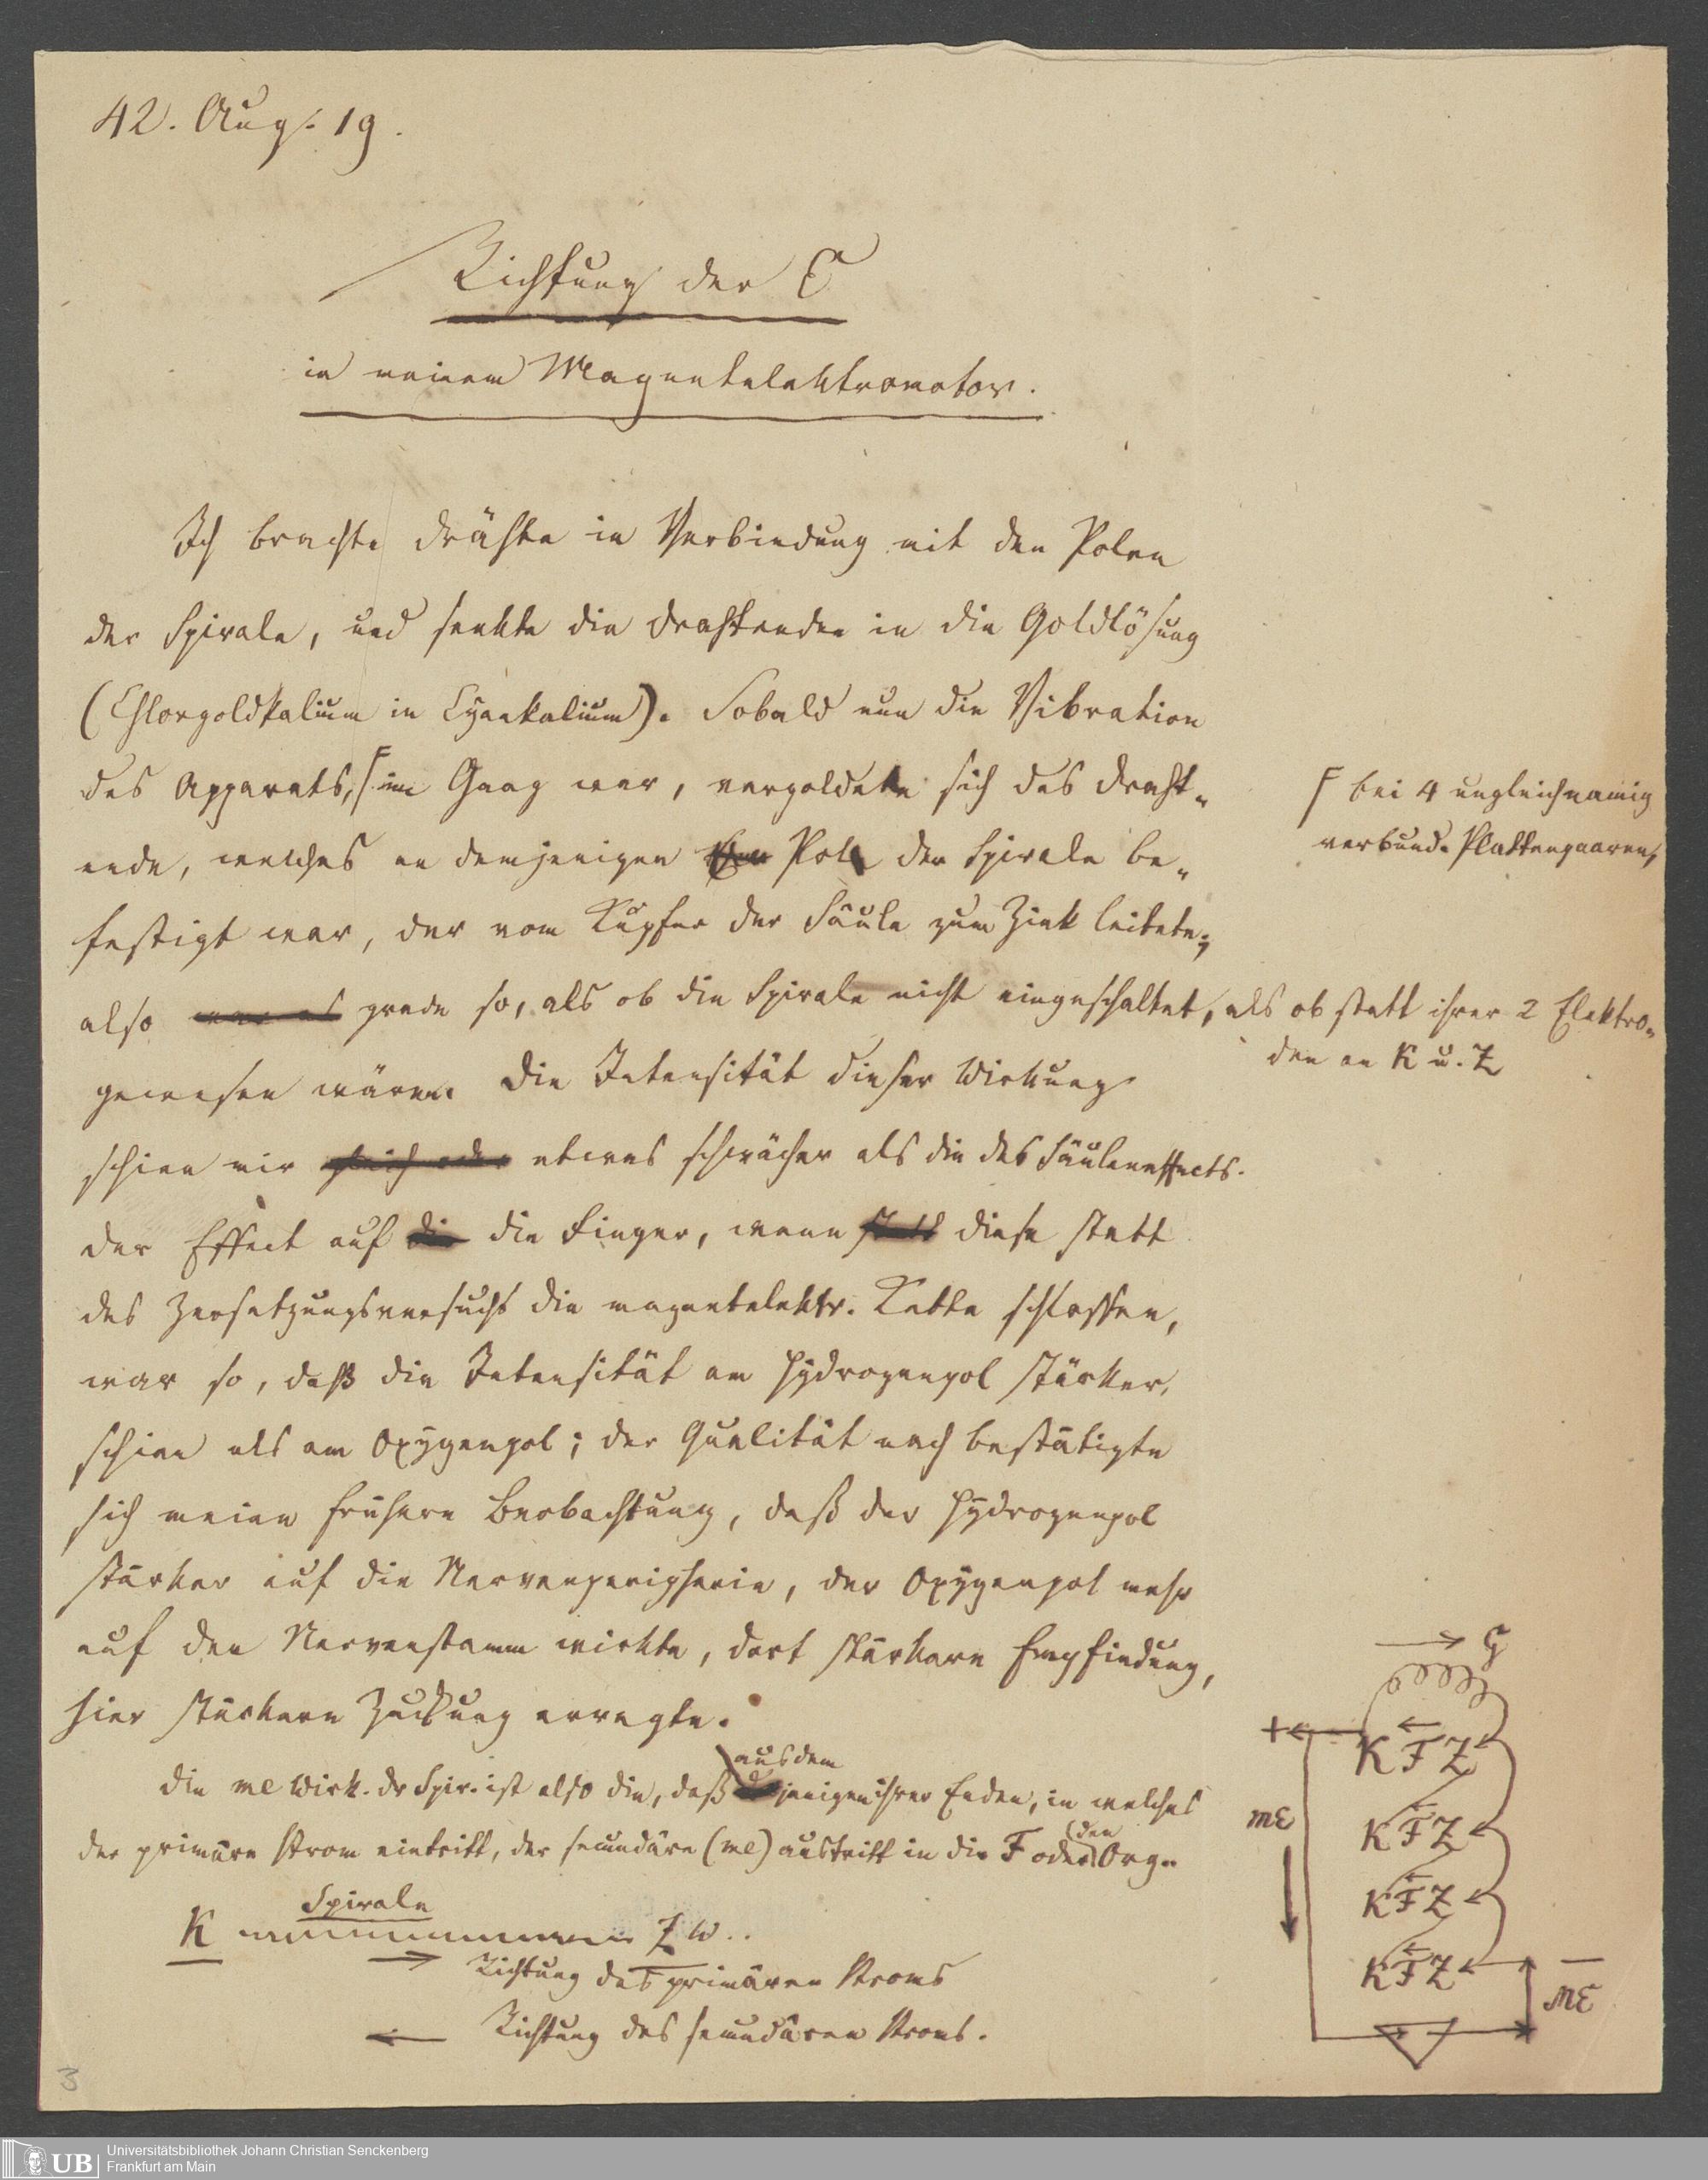 42. Aug. 19.
Richtung der E
in meinem Magnetelektromotor.
Ich brachte Drähte in Verbindung mit den Polen
der Spirale, und senkte die Drahtenden in die Goldlösung
(Chlorgoldkalium in Cyankalium). Sobald nun die Vibration
des Apparats, im Gang war, vergoldete sich das Draht-
⌈ bei 4 ungleichnamig
verbund. Plattenpaaren,
ende, welches an demjenigen Pole der Spirale be-
festigt war, der vom Kupfer der Säule zum Zink leitete;
also war es grade so, als ob die Spirale nicht eingeschaltet, als ob statt ihrer 2 Elektro-
den an K u. Z
gewesen wären. Die Intensität dieser Wirkung
schien mir gleich oder etwas schwächer als die des Säuleneffects.
Der Effect auf die die Finger, wenn statt diese statt
des Zersetzungsversuchs die magnetelektr. Kette schlossen,
war so, daß die Intensität am Hydrogenpol stärker,
schien als am Oxygenpol; der Qualität nach bestätigte
sich meine frühere Beobachtung, daß der Hydrogenpol
stärker auf die Nervenperipherie, der Oxygenpol mehr
auf den Nervenstamm wirkte, dort stärkere Empfindung,
hier stärkere Zuckung erregte.
aus dem
Die me Wirk. dr Spir. ist also die, daß jenigen ihrer Enden, in welches
der primäre Strom eintritt, der secundäre (me) austritt in die F oder (den) Org.
Spirale
K Z w..
→ Richtung des primären Stroms
← Richtung des secundären Stroms.
+
K F Z
K F Z
K F Z
K F Z
mE
mE
3
UB
Universitätsbibliothek Johann Christian Senckenberg
Frankfurt am Main